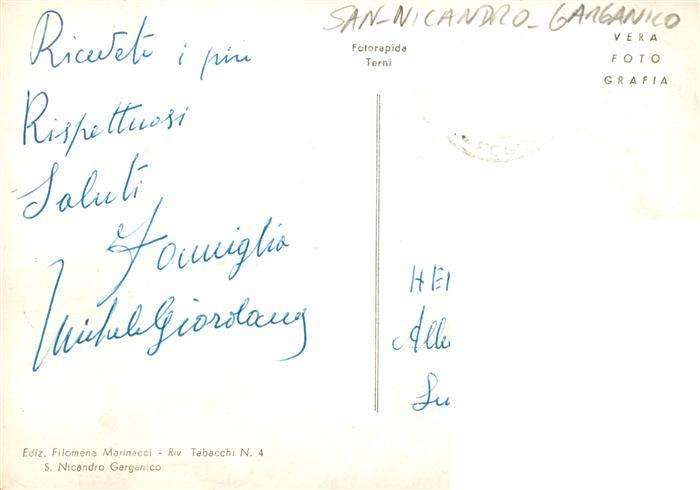 SAN-NICANDRO-GARGANICO
Fotorapida
Terni
VERA
FOTO
GRAFIA
Ricevete i più
Rispettuosi
Saluti
Famiglia
Michele Giordano
HE
Alle
Lu
Ediz. Filomena Marinacci - Riv. Tabacchi N. 4
S. Nicandro Garganico